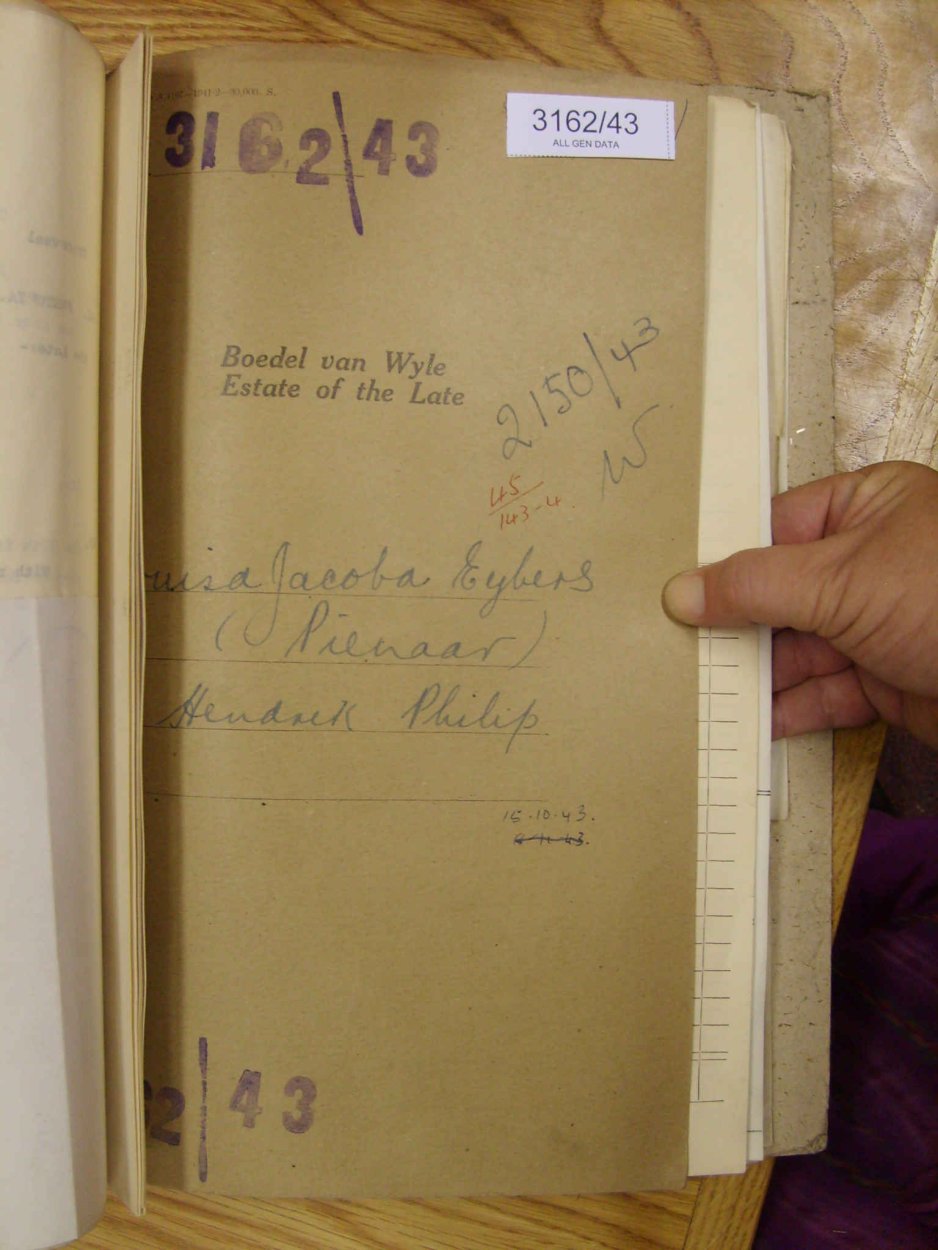 1941-2-30,000. S.
3162/43
3162/43
ALL GEN DATA
Boedel van Wyle
Estate of the Late
2150/43
W
45
143-4.
uisa Jacoba Eybers
(Pienaar)
Hendrik Philip
15.10.43.
2/43